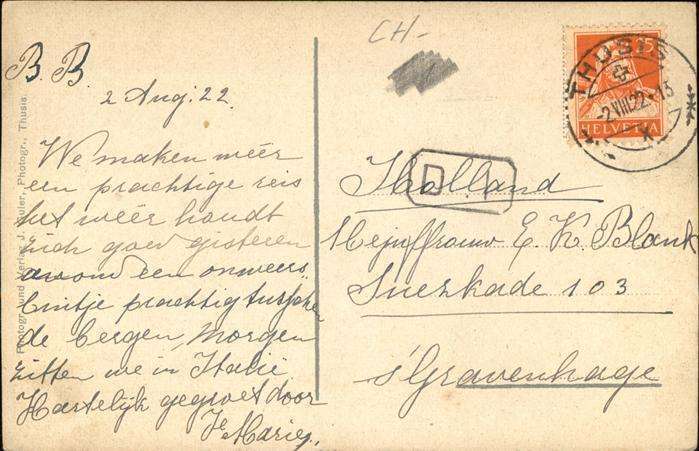 CH-
B B
2 Aug: 22.
We maken weer
een prachtige reis
het weer houdt
zich goed gisteren
avond een onweers
buitje prachtig tusschen
de bergen, morgen
zitten we in Italië
Hartelijk gegroet door
Marie,
Photogr. und Verlag J. Photogr., Thusis.
25
HELVETIA
THUSIS
-2.VIII.22.-13
D
Holland
Mejuffrouw E. K. Blank
Suezkade 103
s'Gravenhage